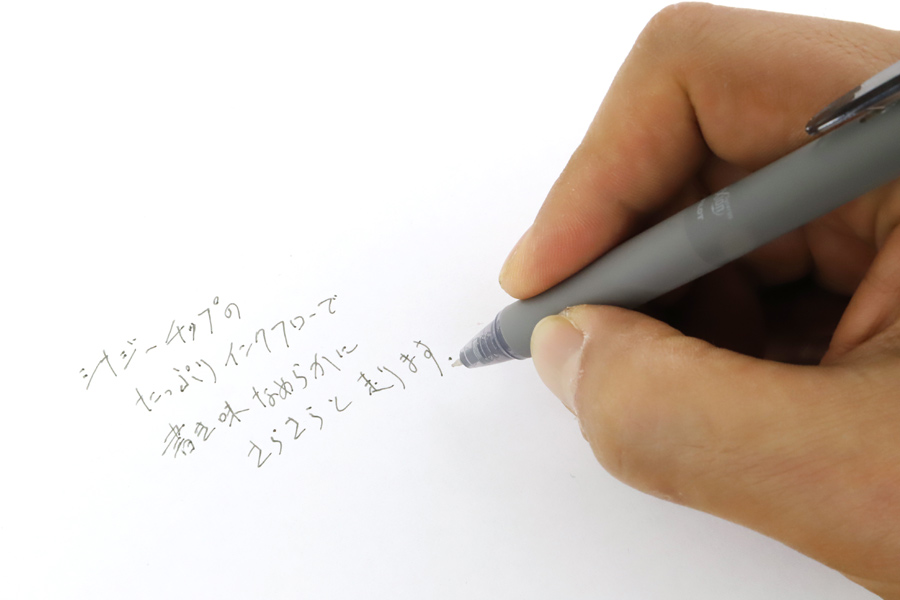 シナジーチップの
たっぷりインクフローで
書き味なめらかに
さらさらと走ります.